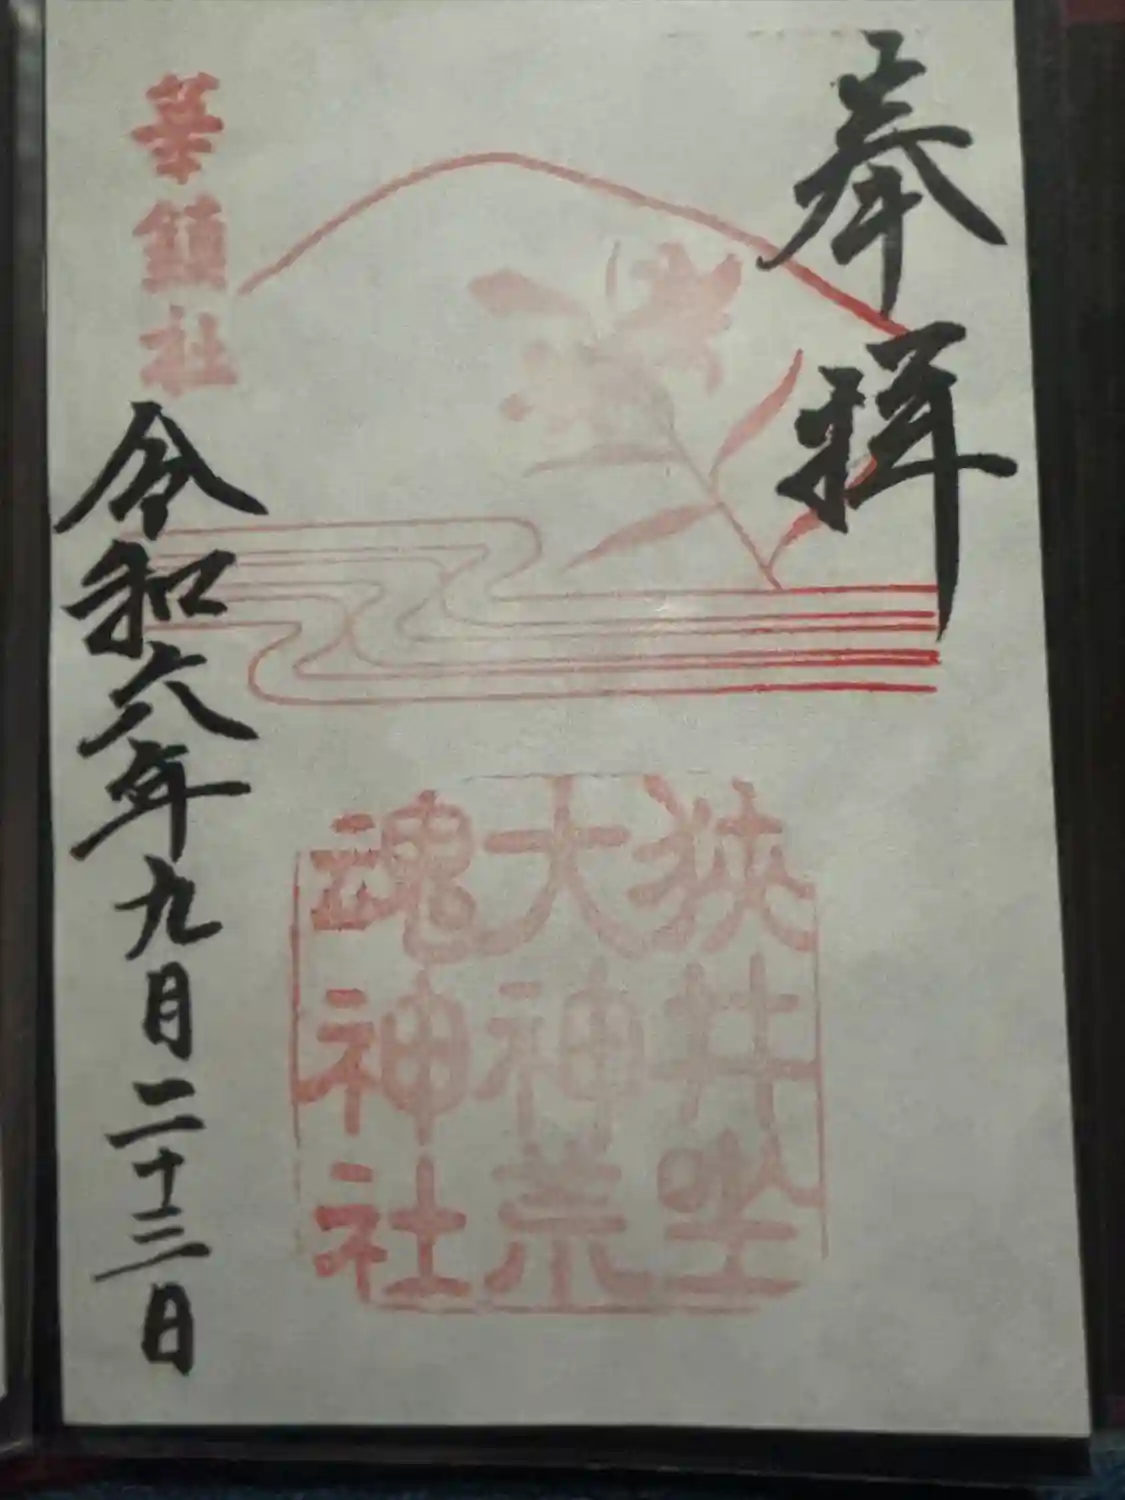 奉拝
狭井坐
大神荒
魂神社
華鎮社
令和六年九月二十三日